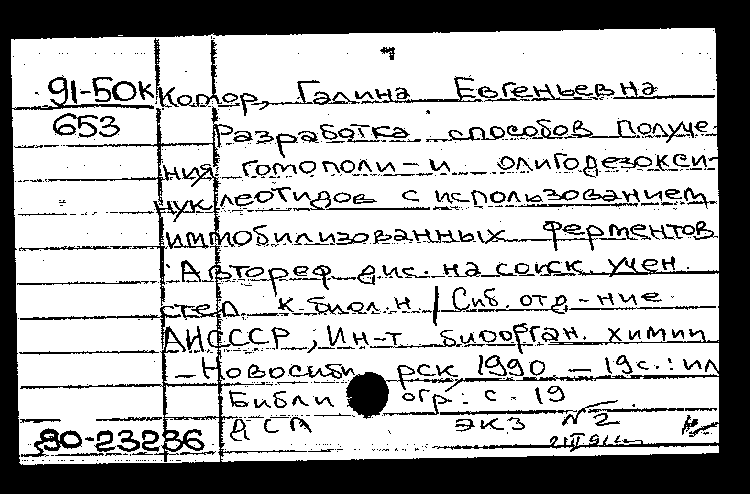 91-50к Котор, Галина Евгеньевна
653 Разработка способов получе-
ния гомополи- и олигодезокси-
нуклеотидов с использованием
иммобилизованных ферментов
Автореф дис. на соиск. учен.
степ. к.биол.н / Сиб. отд-ние
АН СССР, Ин-т биоорган. химии
- Новосибирск 1990 - 19 с.: ил
Библиогр.: с. 19
90-23236 ДСП экз №2